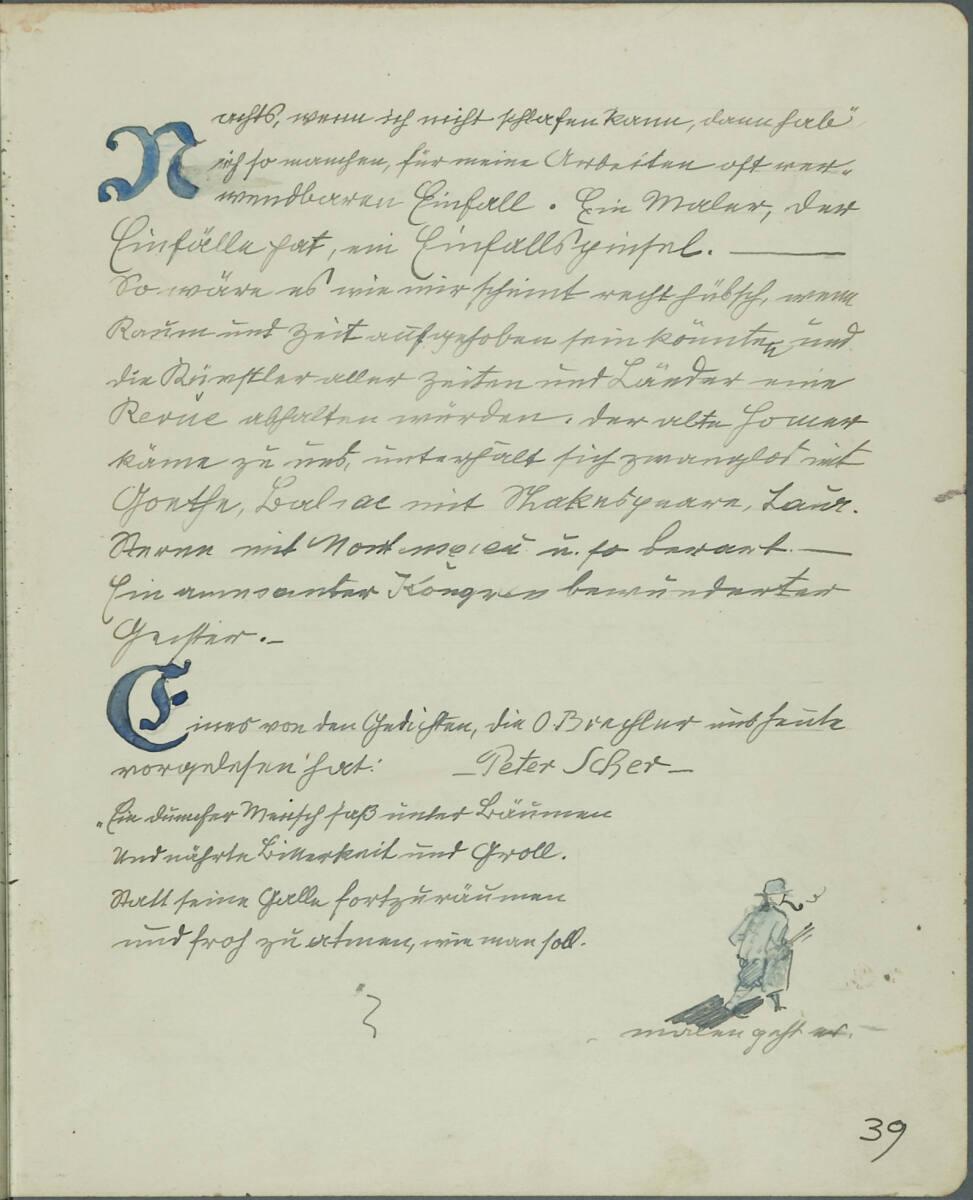 Nachts, wenn ich nicht schlafen kann, dann hab'
ich so manchen, für meine Arbeiten oft ver-
wendbaren Einfall. Ein Maler, der
Einfälle hat, ein Einfallspinsel. —
So wäre es wie mir scheint recht hübsch, wenn
Raum und Zeit aufgehoben sein könnten und
die Künstler aller Zeiten und Länder eine
Revue abhalten würden. Der alte Homer
käme zu uns, unterhält sich zwanglos mit
Goethe, Balzac mit Shakespeare, Laur.
Sterne mit u. so weiter. —
Ein amüsanter Kongress bewunderter
Geister. —
Eines von den Gedichten, die O. uns heute
vorgelesen hat: — Peter Scher —
„Ein dummer Mensch saß unter Bäumen
Und nährte Bitterkeit und Groll.
Statt seine Galle fortzuräumen
und froh zu atmen, wie man soll.
malen geht er.
39